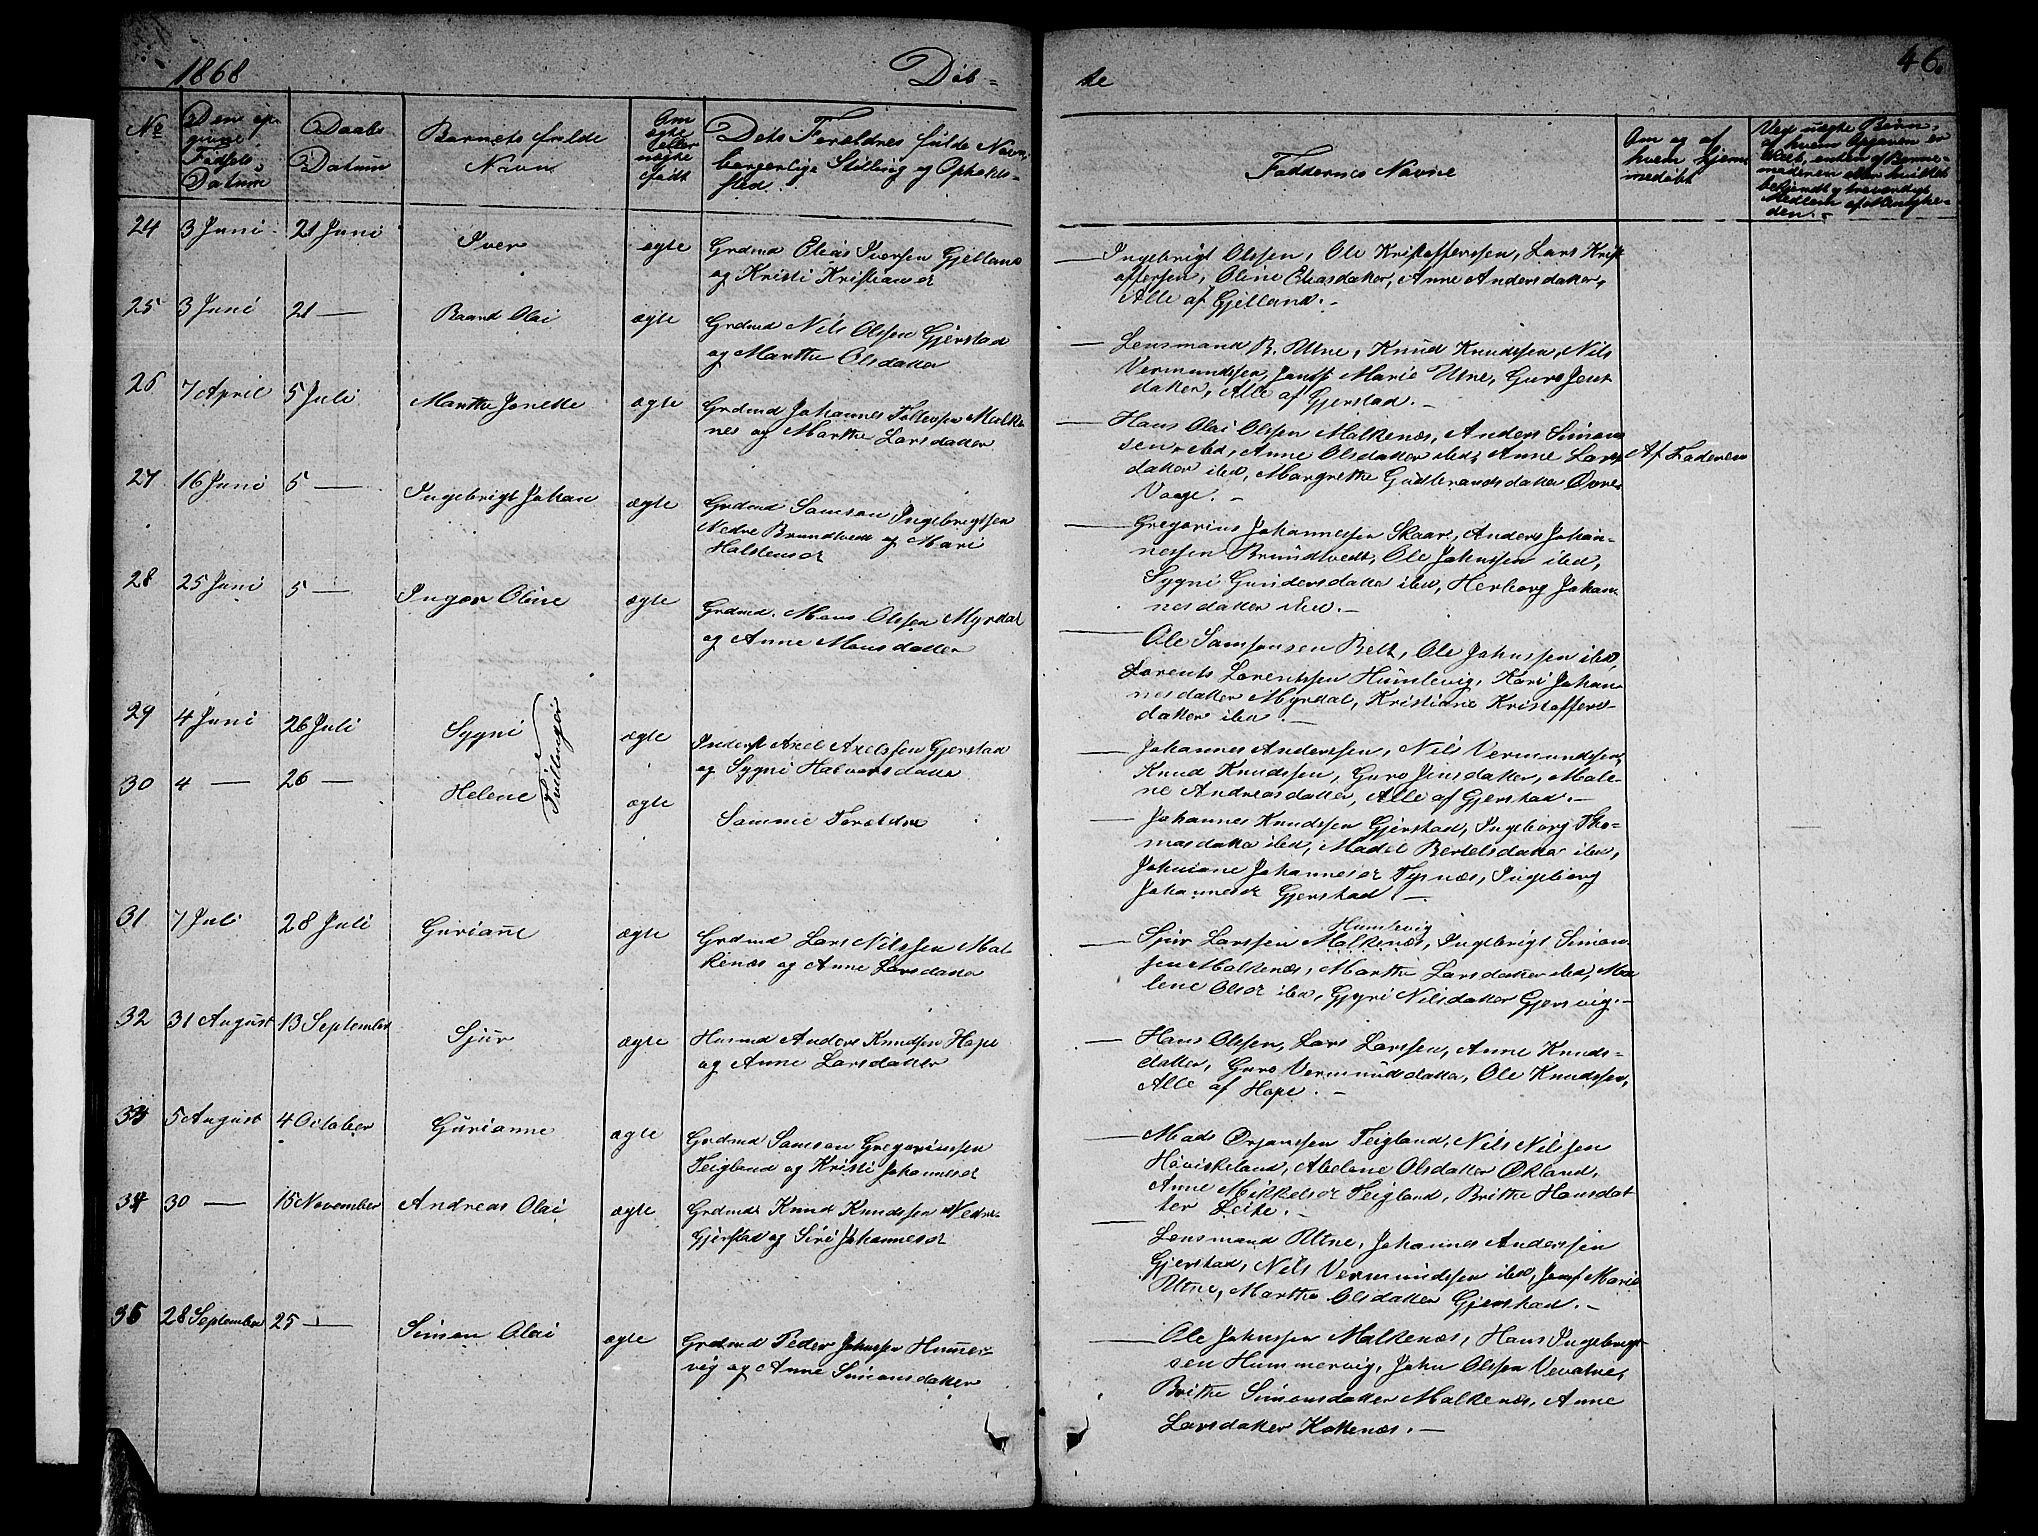 1868
Døb=
te
46.
No
Den op-
givne
Fødsels-
Datum
Daabs
Datum
Barnets fulde
Navn
Om
ægte
eller
uægte
født
Dets Forældres fulde Navn,
borgerlige Stilling og Opholds-
sted.
Faddernes Navne
Om og af
hvem hjem-
medøbt
Ved uægte Børn,
af hvem Opgaven er
skeet, enten af Barne-
moderen eller hvilket
bekjendt og troværdigt
Medlem af Menighe-
den.-
24 3 Juni 21 Juni Iver ægte Grdmd Elias Iversen Gjelland
og Kristi Kristiansd
Ingebrigt Olssen, Ole Kristofferssen, Lars Krist
offersen, Oline Eliasdatter, Anne Andersdatter,
Alle af Gjelland.-
25 3 Juni 21 — Baard Olai ægte Grdmd Nils Olssen Gjerstad
og Marthe Olsdatter
— Lensmand B. Utne, Knud Knudssen, Nils
Vermundssen, Marie Utne, Guro Jens
datter, Alle af Gjerstad.-
26 7 April 5 Juli Marthe Jonette ægte Grdmd Johannes Tollevsen Malke
nes og Marthe Larsdatter
— Hans Olai Olssen Malkenæs, Anders Simon
sen ibd, Anne Olsdatter ibd, Anne Lars
datter ibd, Margrethe Gudbrandsdatter Øvre
Vaage.-
Af Faderen
27 16 Juni 5 — Ingebrigt Johan ægte Grdmd Samson Ingebrigtsen
Nedre Brundtvedt og Mari
Halstensd
— Gregorius Johannessen Skaar, Anders Johan-
nessen Brundtvedt, Ole Johnssen ibd,
Sygni Gundersdatter ibd, Herborg Johan-
nesdatter ibd.-
28 25 Juni 5 — Inger Oline ægte Grdmd. Mons Olssen Myrdal
og Anne Monsdatter
— Ole Samsonsen Belt, Ole Johnssen ibd,
Lorents Lorentssen Humlevig, Kari Johan
nesdatter Myrdal, Kristiane Kristoffers-
datter ibd.-
29 4 Juni 26 Juli Sygni ægte Inderst Axel Axelssen Gjerstad
og Sygni Halvorsdatter
Tvillinger
— Johannes Anderssen, Nils Vermundssen,
Knud Knudssen, Guro Jensdatter, Male-
ne Andreasdatter, Alle af Gjerstad.-
30 4 — 26 — Helene ægte Samme Forældre
— Johannes Knudssen Gjerstad, Ingeborg Tho-
masdatter ibd, Madel Bertelsdatter ibd,
Johniane Johannesd Tysnæs, Ingeborg
Johannesd Gjerstad —
31 7 Juli 28 Juli Guriane ægte Grdmd Lars Nilssen Mal
kenæs og Anne Larsdatter
Humlevig
— Sjur Larssen Malkenæs, Ingebrigt Simon-
sen Malkenæs, Marthe Larsdatter ibd, Ma
lene Olsd ibd, Gjyri Nilsdatter Gjersvig.-
32 31 August 13 September Sjur ægte Husmd Anders Knudsen Hope
og Anne Larsdatter
— Hans Olssen, Lars Larssen, Anne Knuds-
datter, Guro Vermunddatter, Ole Knudssen,
Alle af Hope.-
33 5 August 4 October Gurianne ægte Grdmd Samson Gregoriussen
Teigland og Kristi Johannesd
— Mads Ørjanssen Teigland, Nils Nilsen
Haviskeland, Abelone Olsdatter Økland,
Anne Mikkelsd Teigland, Brithe Hansdat
ter Leite.-
34 30 — 15 November Andreas Olai ægte Grdmd Knud Knudssen Nedre
Gjerstad og Siri Johannesd
— Lensmand Utne, Johannes Anderssen
Gjerstad, Nils Vermundssen ibd, Marie
Utne, Marthe Olsdatter Gjerstad.-
35 28 September 25 — Simon Olai ægte Grdmd Peder Johnssen Hummer-
vig og Anne Simonsdatter
— Ole Johnssen Malkenæs, Hans Ingebrigt
sen Hummervig, John Olssen Vevatne,
Brithe Simonsdatter Malkenæs, Anne
Larsdatter Kalkenæs.-